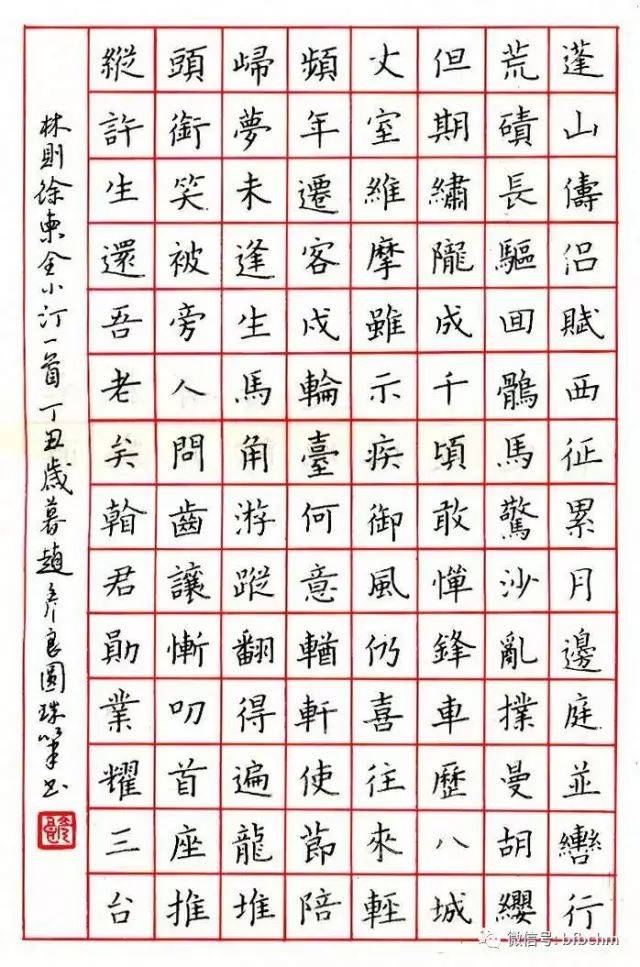 蓬山儔侶賦西征累月邊庭並轡行
荒磧長驅回鶻馬驚沙亂撲曼胡纓
但期繡隴成千頃敢憚鋒車歷八城
丈室維摩雖示疾御風仍喜往來輕
頻年遷客戍輪臺何意輶軒使節陪
歸夢未逢生馬角游蹤翻得遍龍堆
頭銜笑被旁人問齒讓慚叨首座推
縱許生還吾老矣看君勛業耀三台
林則徐柬全小汀一首丁丑歲暮趙彥良圓珠筆書
微信号: bfbchm